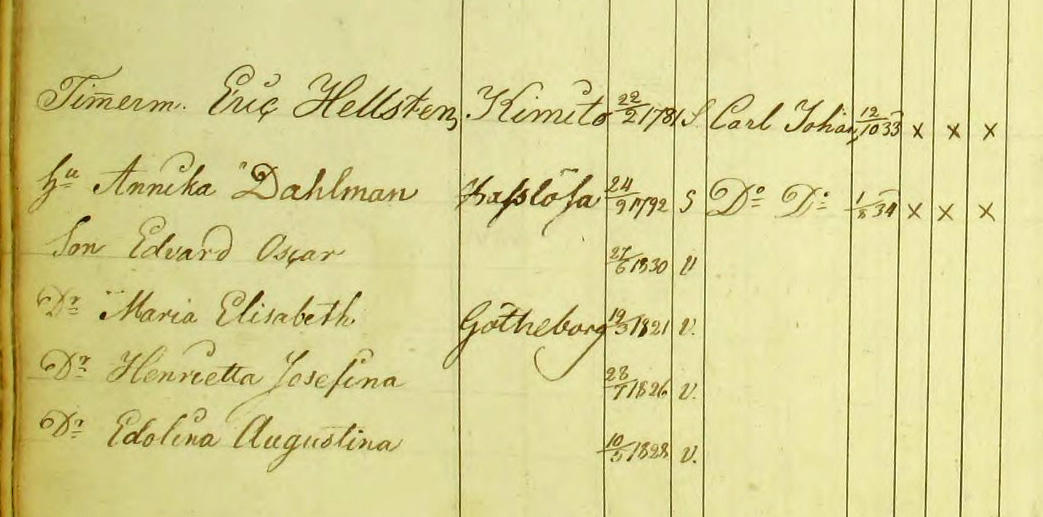 Tim̄erm. Eric Hellsten, Kimito 22/2 1781 S Carl Johan, 12/10 33 x x x
Hu Annika Dahlman Hasslösa 24/9 1792 S Do Do 1/8 34 x x x
Son Edvard Oscar 27/6 1830 U
Dr Maria Elisabeth Götheborg 19/3 1821 U.
Dr Henrietta Josefina 28/7 1826 U.
Dr Edolina Augustina 10/3 1828 U.